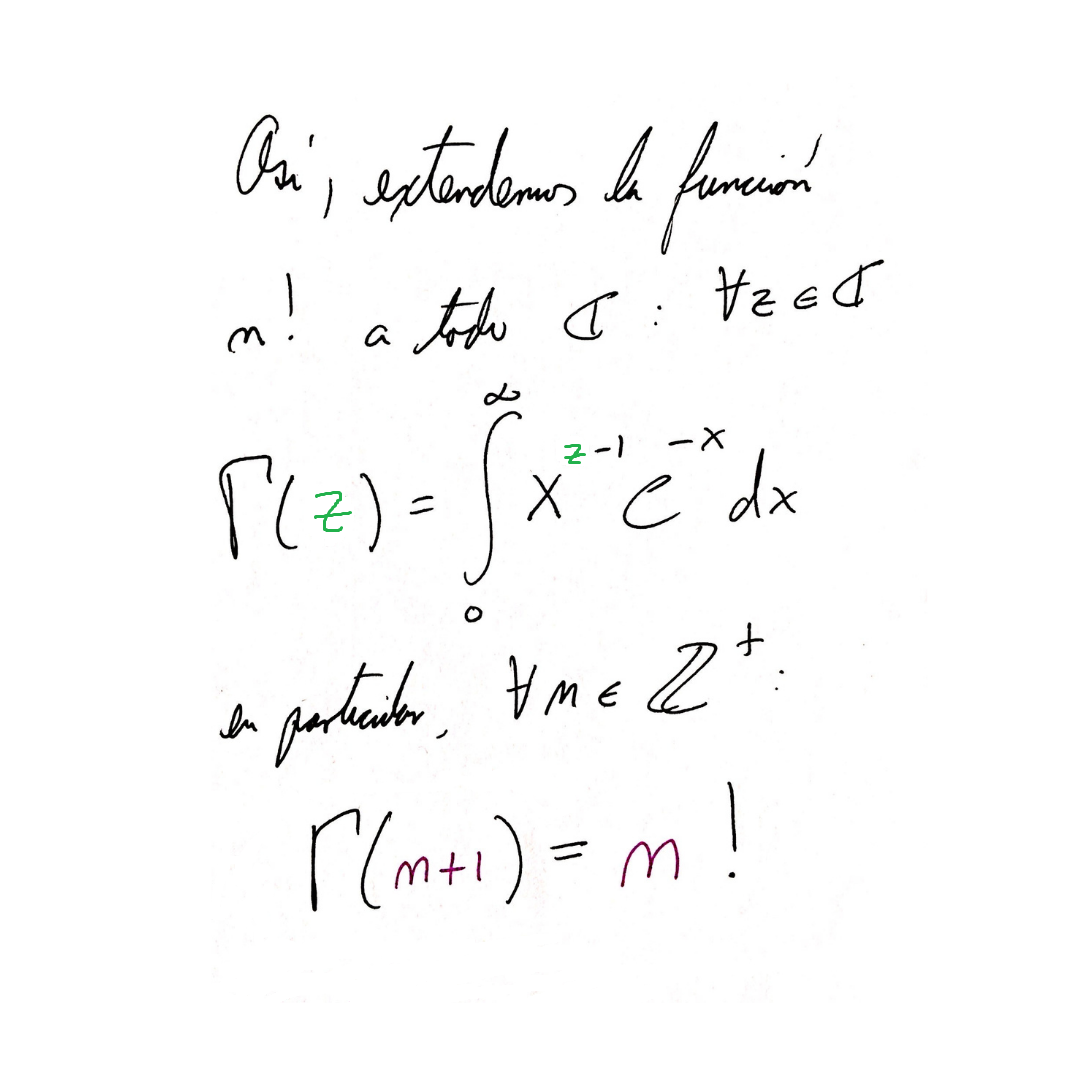 Así, extendemos la función
n! a todo ℂ : ∀z ∈ ℂ
Γ(z) = ∫₀^∞ x^(z-1) e^(-x) dx
en particular, ∀ n ∈ ℤ⁺ :
Γ(n+1) = n !